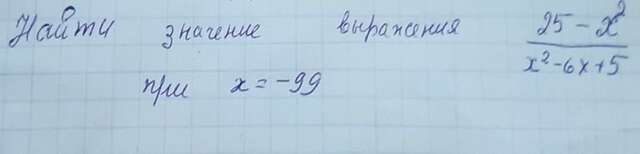 Найти значение выражения (25 - x²)/(x² - 6x + 5)
при x = -99